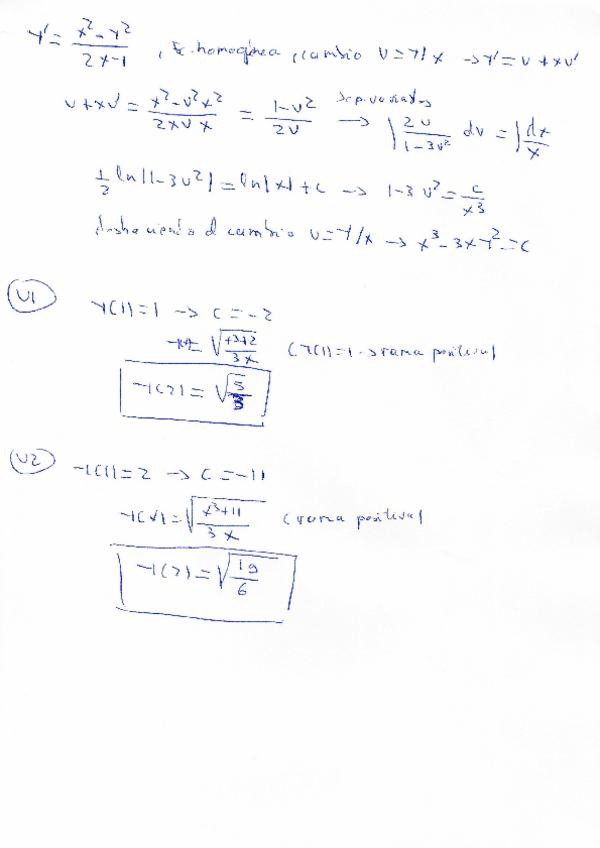 y' = (x² - y²) / (2xy), Ec. homogénea, cambio v = y/x → y' = v + xv'
v + xv' = (x² - v²x²) / (2xvx) = (1 - v²) / 2v → sep. variables ∫ 2v / (1 - 3v²) dv = ∫ dx/x
½ ln|1 - 3v²| = ln|x| + c → 1 - 3v² = c / x³
deshaciendo el cambio v = y/x → x³ - 3xy² = c
V1
y(1) = 1 → c = -2
√((x³+2) / 3x) (y(1) = 1 → rama positiva)
y(2) = √(5/3)
V2
y(1) = 2 → c = -11
y(x) = √((x³+11) / 3x) (rama positiva)
y(2) = √(19/6)